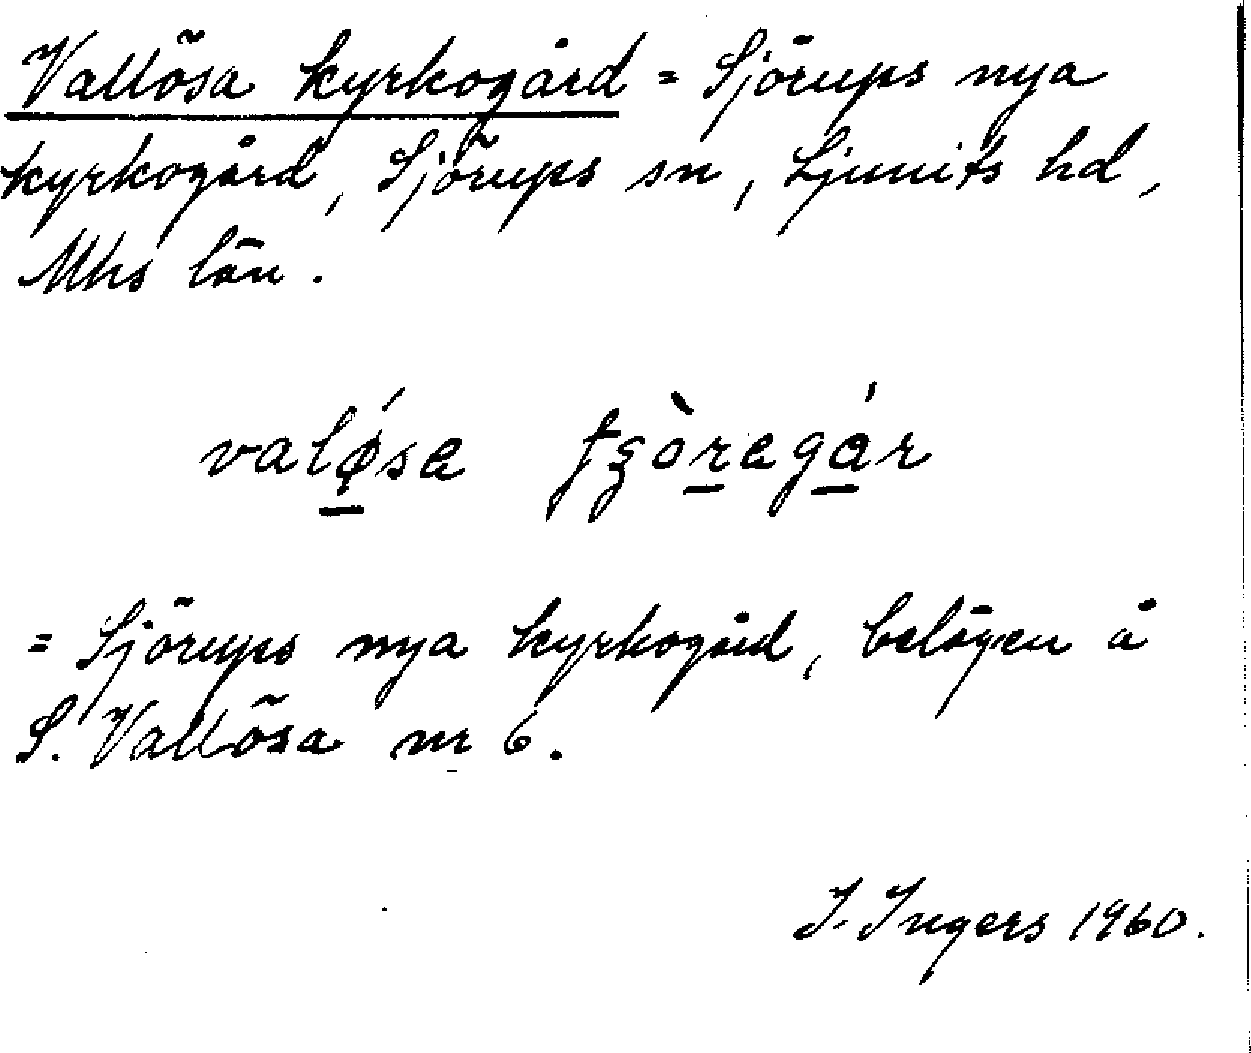 Vallösa kyrkogård = Sjörups nya
kyrkogård, Sjörups sn, Ljunits hd,
Mhs län.
valǿ̱sa
= Sjörups nya kyrkogård, belägen å
S. Vallösa nr 6.
I. Ingers 1960.